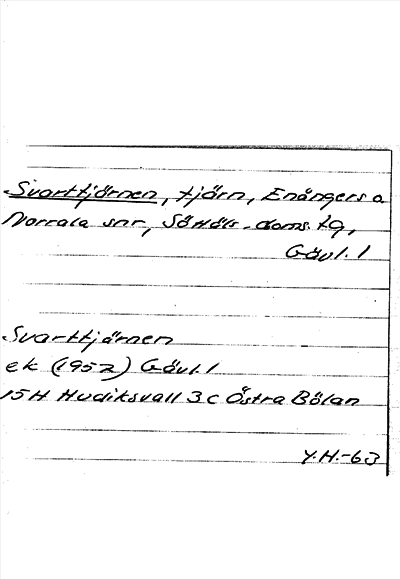 Svarttjärnen, tjärn, Enångers o
Norrala snr, SöHäls. doms. tg,
Gävl. l
Svarttjärnen
ek (1952) Gävl. l
15H Hudiksvall 3c Östra Bölan
Y.H.-63